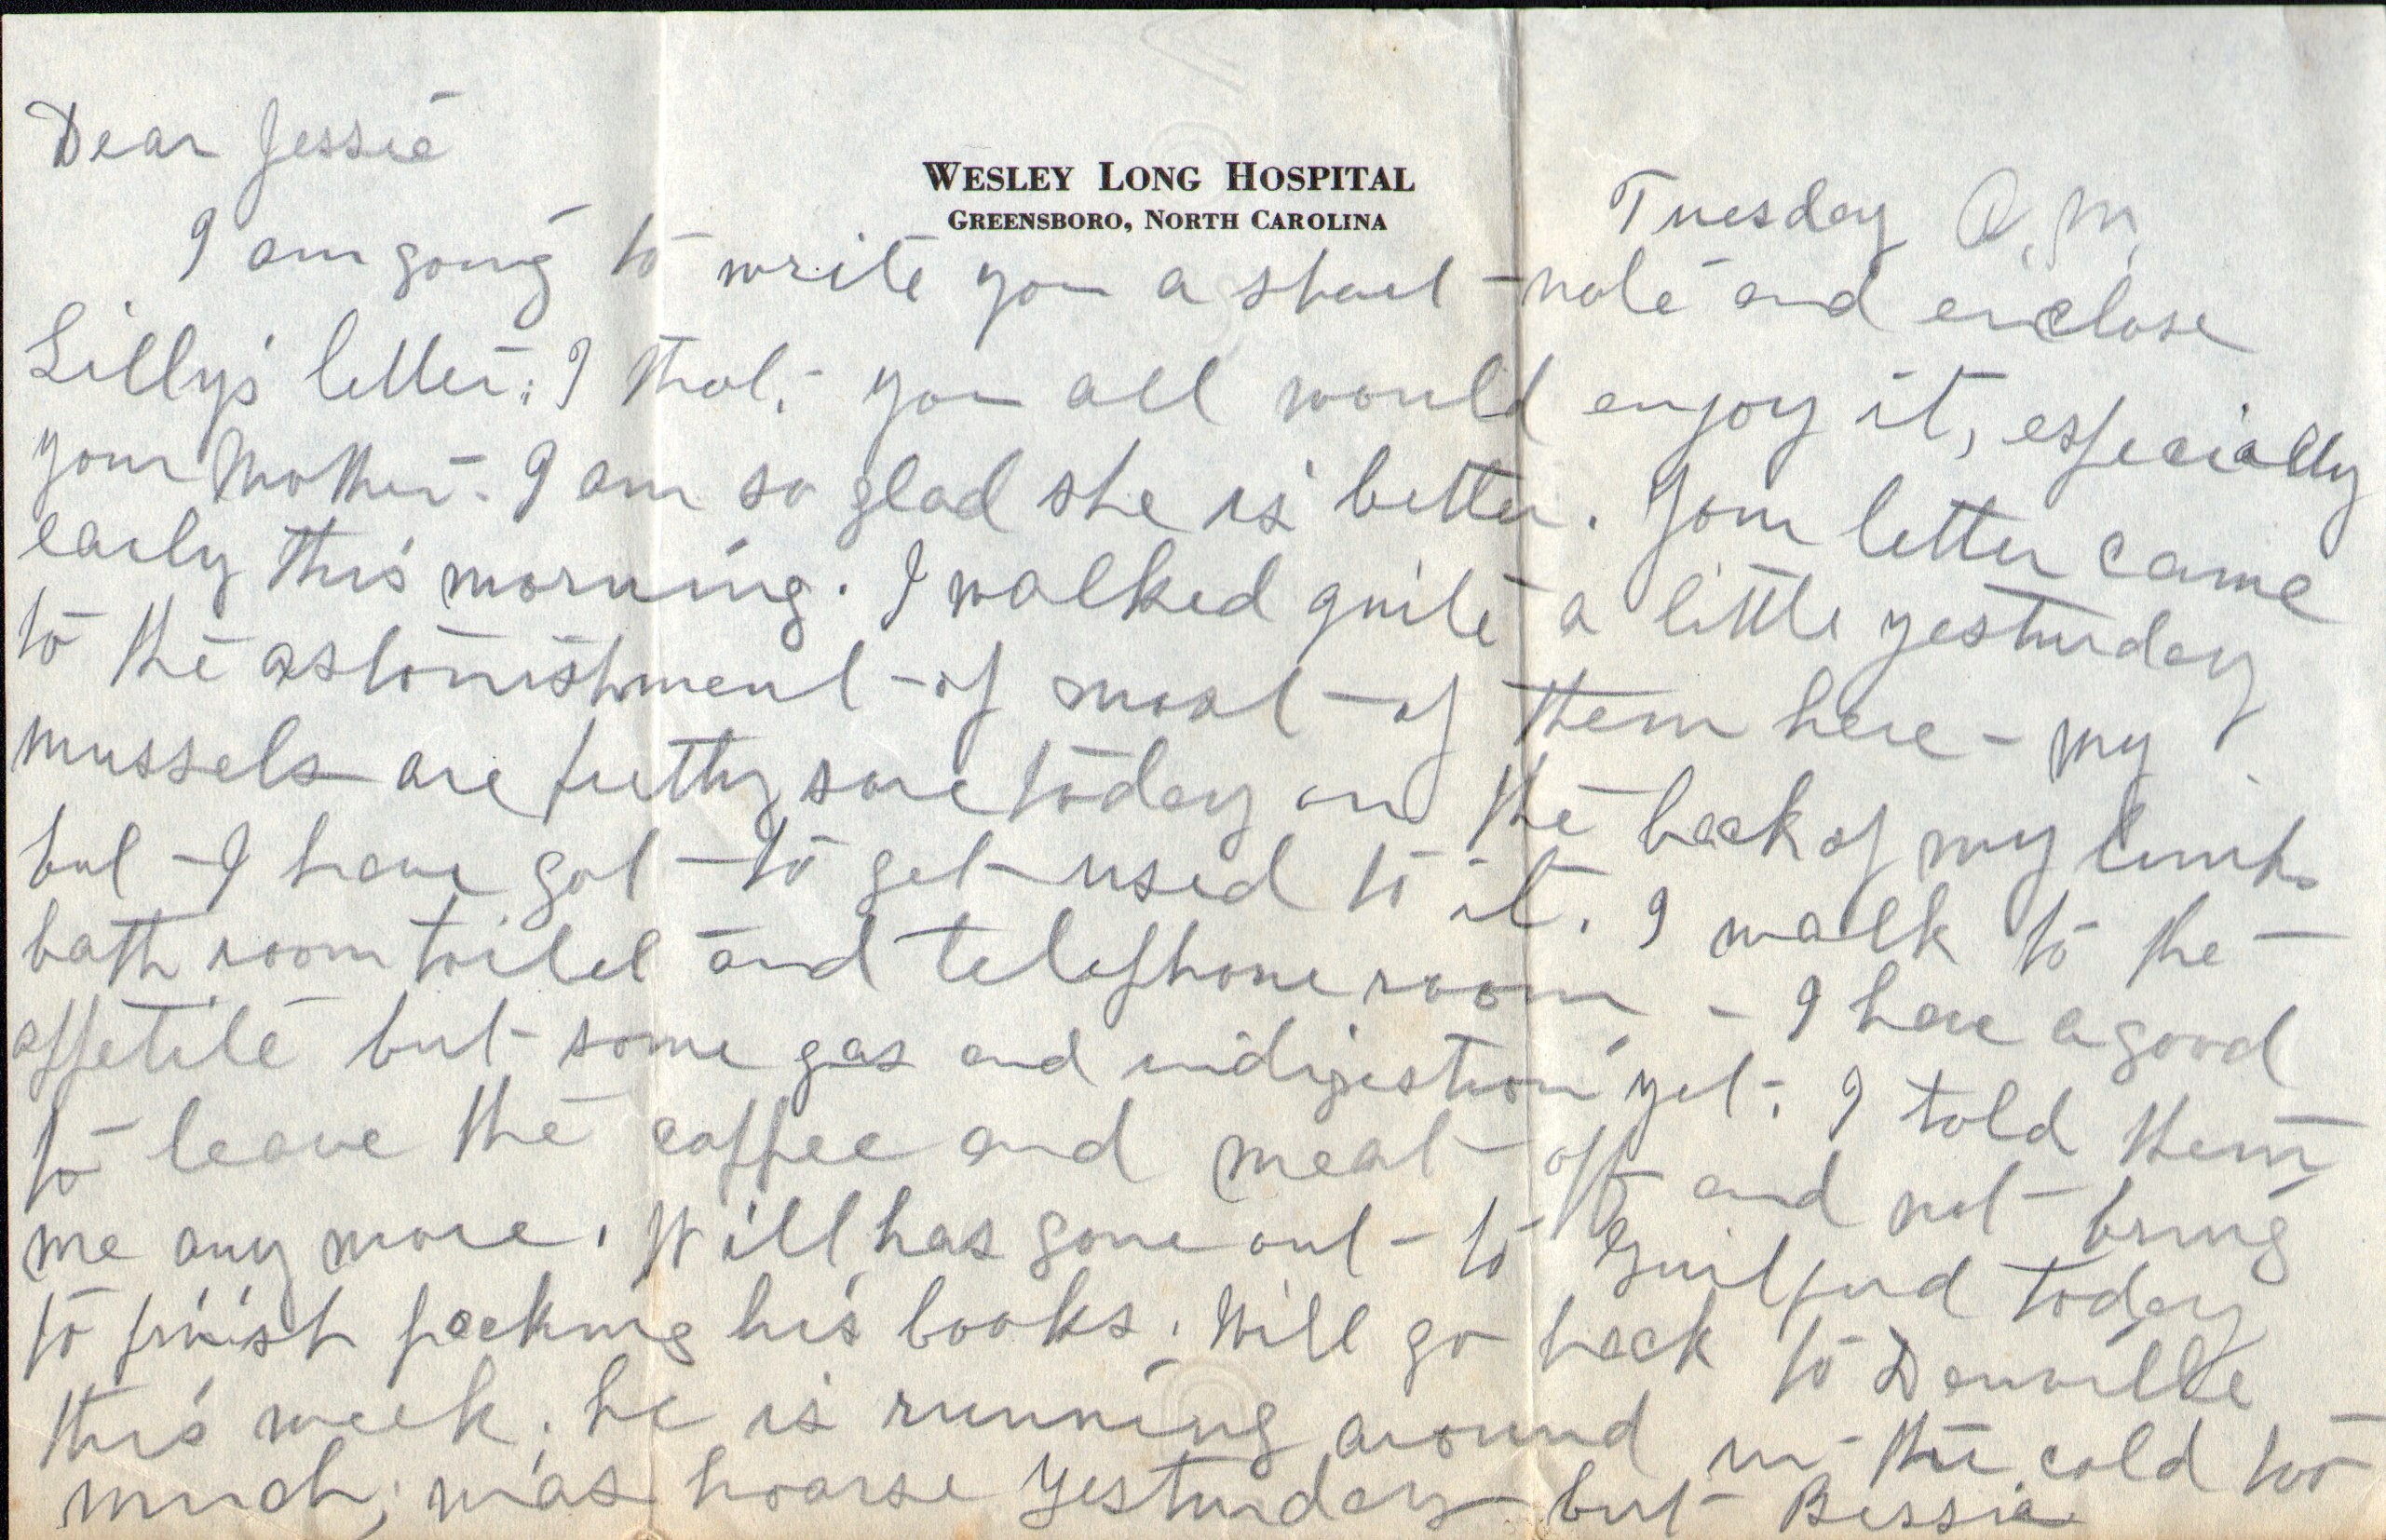 Dear Jessie
WESLEY LONG HOSPITAL
GREENSBORO, NORTH CAROLINA
Tuesday A.M.
I am going to write you a short note and enclose
Lilly's letter; I thot. you all would enjoy it, especially
your Mother. I am so glad she is better. Your letter came
early this morning. I walked quite a little yesturday
to the astonishment of most of them here - my
mussels are pretty sore today on the back of my limbs
but I have got to get used to it. I walk to the
bath room toilet and telephone room - I have a good
appetite but some gas and indigestion yet; I told them
to leave the coffee and meat off and not bring
me any more. Will has gone out to Guilford today
to finish packing his books. Will go back to Danville
this week. he is running around in the cold too
much; was hoarse yesturday but Bessie